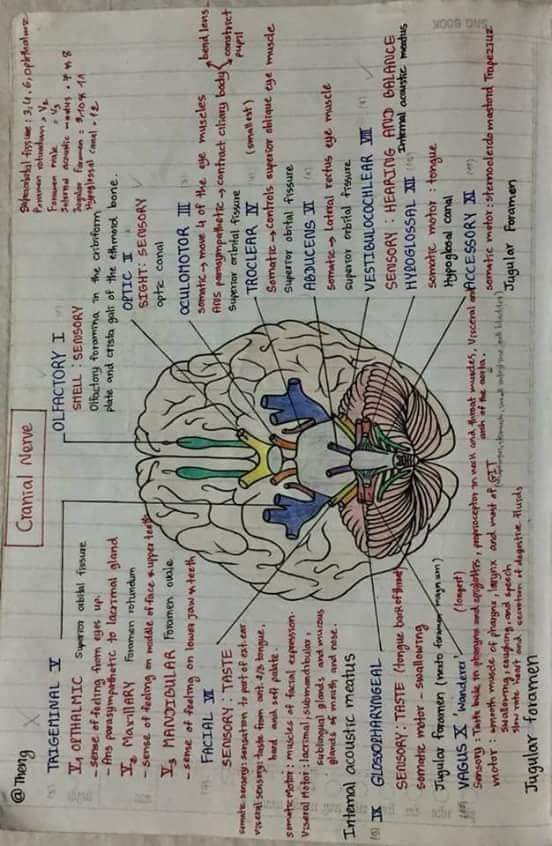 @Thong
Cranial Nerve
TRIGEMINAL V Superior obital fissure
V1 OPTHALMIC
- sense of feeling from eyes up.
- Ans parasympathetic to lacrimal gland
V2 Maxillary Foramen rotundum
- sense of feeling on middle of face & upper teeth
V3 MANDIBULAR Foramen ovale
- sense of feeling on lower jaw & teeth
FACIAL VII
SENSORY : TASTE
somatic sensory: sensation to part of ext ear
visceral sensory: taste from ant. 2/3 tongue,
hard and soft palate.
somatic Motor : muscles of facial expression.
Visceral Motor : lacrimal, submandibular,
sublingual glands and mucous
glands of mouth and nose.
Internal acoustic meatus
IX GLOSSOPHARYNGEAL
SENSORY : TASTE (tongue back of third)
somatic motor - swallowing
Jugular foramen (next to foramen magnum)
VAGUS X 'Wanderer' (longest)
Sensory : Taste buds in pharynx and epiglottis, proprioceptor in neck and throat muscles, Visceral and
arch of the aorta.
motor : smooth muscle of pharynx, larynx and most of GIT
swallowing, coughing, and speech
slow rate heart and secretion of digestive fluids
Jugular foramen
OLFACTORY I
SMELL : SENSORY
Olfactory foramina in the cribriform
plate and crista gali of the ethmoid bone.
OPTIC II
SIGHT : SENSORY
optic canal
OCULOMOTOR III
somatic → move 4 of the eye muscles
ANS parasympathetic → contract ciliary body
bend lens
constrict
pupil
Superior oribital fissure
TROCLEAR IV (smallest)
Somatic → controls superior oblique eye muscle
Superior obital fissure
ABDUCENS VI
somatic → Latral rectus eye muscle
superior orbital fissure
VESTIBULOCOCHLEAR VIII
SENSORY : HEARING AND BALANCE
Internal acoustic meatus
HYPOGLOSSAL XII
somatic motor : tongue
Hypoglosal canal
ACCESSORY XI
somatic motor : sternocleido mastoid Trapezius
Jugular Foramen
Foramen rotundum = V2
Foramen ovale = V3
Internal acoustic meatus = 7 & 8
Jugular foramen = 9, 10 & 11
Hypoglossal canal = 12
SNG BOOK